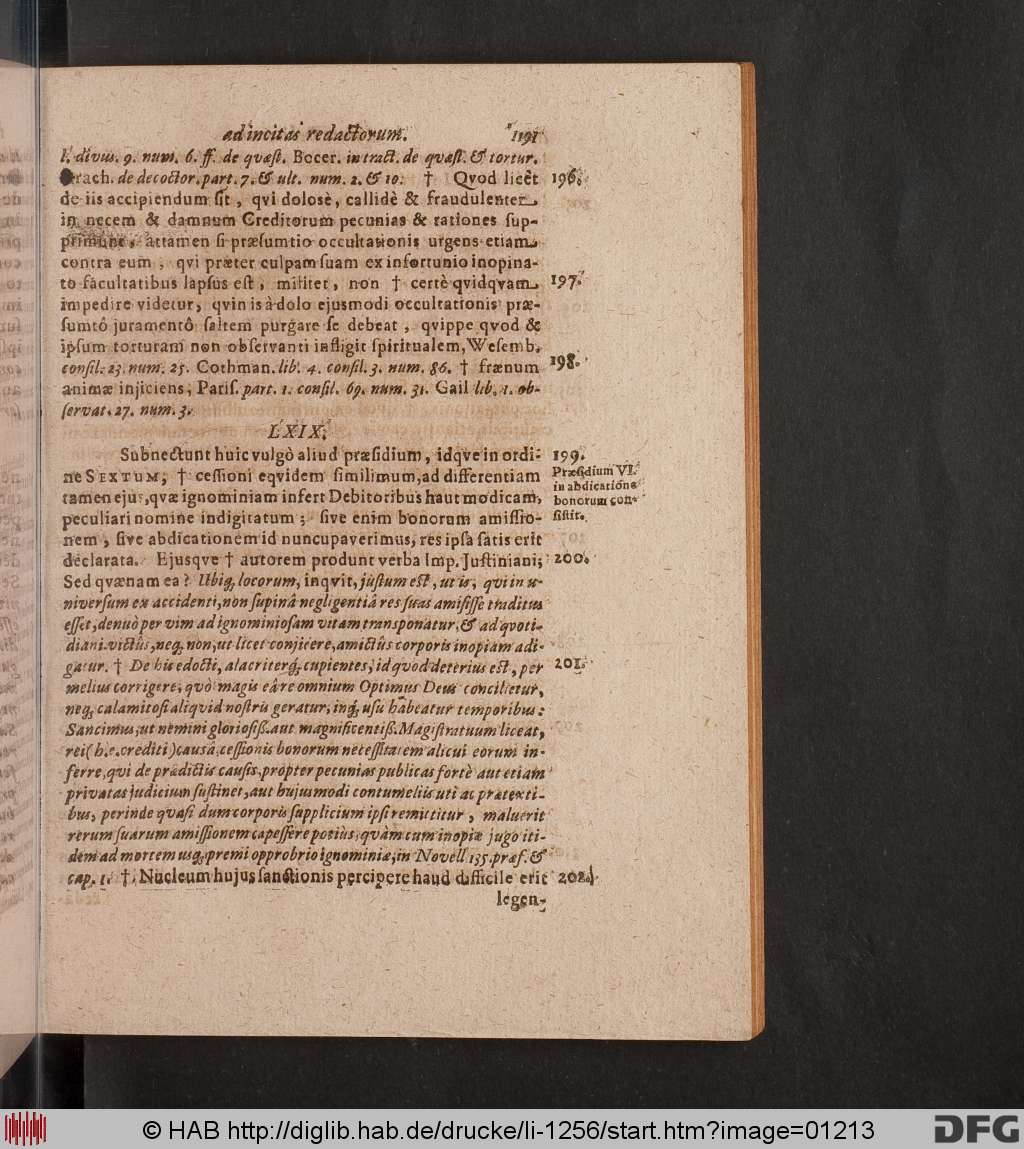 ad incitas redactorum. 1191
l. divus. 9. num. 6. ff. de quæst. Bocer. in tract. de quæst. & tortur.
rach. de decoctor. part. 7. & ult. num. 2. & 10. † Qvod licet 196.
de iis accipiendum sit, qvi dolosè, callidè & fraudulenter
in necem & damnum Creditorum pecunias & rationes sup-
primunt, attamen si præsumtio occultationis urgens etiam
contra eum, qvi præter culpam suam ex infortunio inopina-
to facultatibus lapsus est, militet, non † certè qvidqvam 197.
impedire videtur, qvin is à dolo ejusmodi occultationis præ-
sumtô juramentô saltem purgare se debeat, quippe qvod &
ipsum torturam non observanti infligit spiritualem, Wesemb.
consil. 23. num. 25. Cothman. lib. 4. consil. 3. num. 86. † frænum 198.
animæ injiciens, Paris. part. 1. consil. 69. num. 31. Gail lib. 1. ob-
servat. 27. num. 3.
LXIX.
Subnectunt huic vulgò aliud præsidium, idqve in ordi- 199.
ne SEXTUM, † cessioni eqvidem similimum, ad differentiam Præsidium VI.
tamen ejus, qvæ ignominiam infert Debitoribus haut modicam, in abdicatione
peculiari nomine indigitatum; sive enim bonorum amissio- bonorum con-
nem, sive abdicationem id nuncupaverimus, res ipsa satis erit sistit.
declarata. Ejusqve † autorem produnt verba Imp. Justiniani; 200.
Sed qvænam ea? Ubiq; locorum, inqvit, justum est, ut is, qui in u-
niversum ex accidenti, non supinâ negligentiâ res suas amisisse traditus
esset, denuò per vim ad ignominiosam vitam transponatur, & ad quoti-
diani victûs, neq; non, ut licet conjicere, amictûs corporis inopiam adi-
gatur. † De his edocti, alacriterq; cupientes, id quod deterius est, per 201.
melius corrigere, quò magis eâ re omnium Optimus Deus concilietur,
neq; calamitosi aliquid nostris geratur, inq; usu habeatur temporibus:
Sancimus, ut nemini gloriosiss. aut magnificentiss. Magistratuum liceat,
rei (h. e. crediti) causâ, cessionis bonorum necessitatem alicui eorum in-
ferre, qui de prædictis causis, propter pecunias publicas fortè aut etiam
privatas judicium sustinet, aut hujusmodi contumeliis uti ac prætexti-
bus, perinde quasi dum corporis supplicium ipsi remittitur, maluerit
rerum suarum amissionem capessere potiùs, quàm cum inopiæ jugo iti-
dem ad mortem usq; premi opprobrio ignominiæ, in Novell 135. præf. &
cap. 1. †. Nucleum hujus sanctionis percipere haud difficile erit 202.
legen-
© HAB http://diglib.hab.de/drucke/li-1256/start.htm?image=01213
DFG